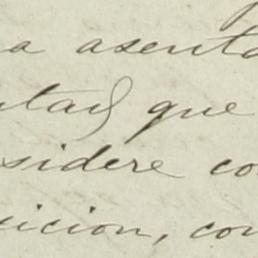 a asenta
ntad que
sidere co
uicion, con